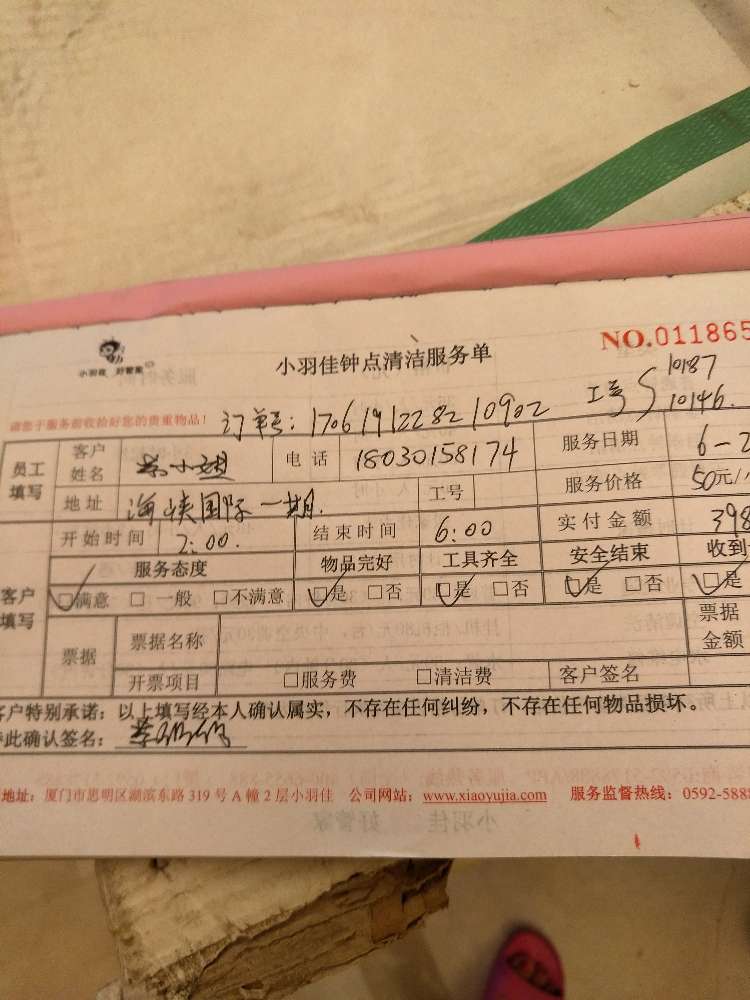 小羽佳 好管家
小羽佳钟点清洁服务单
NO.011865
请您于服务前收拾好您的贵重物品!
订单号: 1706191228210902 工号 10187
10146
员工填写 客户姓名 小姐 电话 18030158174 服务日期 6-2
地址 海峡国际一期. 工号 服务价格 50元/
开始时间 2:00. 结束时间 6:00 实付金额 398
服务态度 物品完好 工具齐全 安全结束 收到
客户填写 ☑满意 □一般 □不满意 ☑是 □否 ☑是 □否 ☑是 □否 ☑是
票据 票据名称 票据金额
开票项目 □服务费 □清洁费 客户签名
客户特别承诺: 以上填写经本人确认属实,不存在任何纠纷,不存在任何物品损坏。
特此确认签名:
地址: 厦门市思明区湖滨东路 319 号 A 幢 2 层小羽佳 公司网站: www.xiaoyujia.com 服务监督热线: 0592-5888